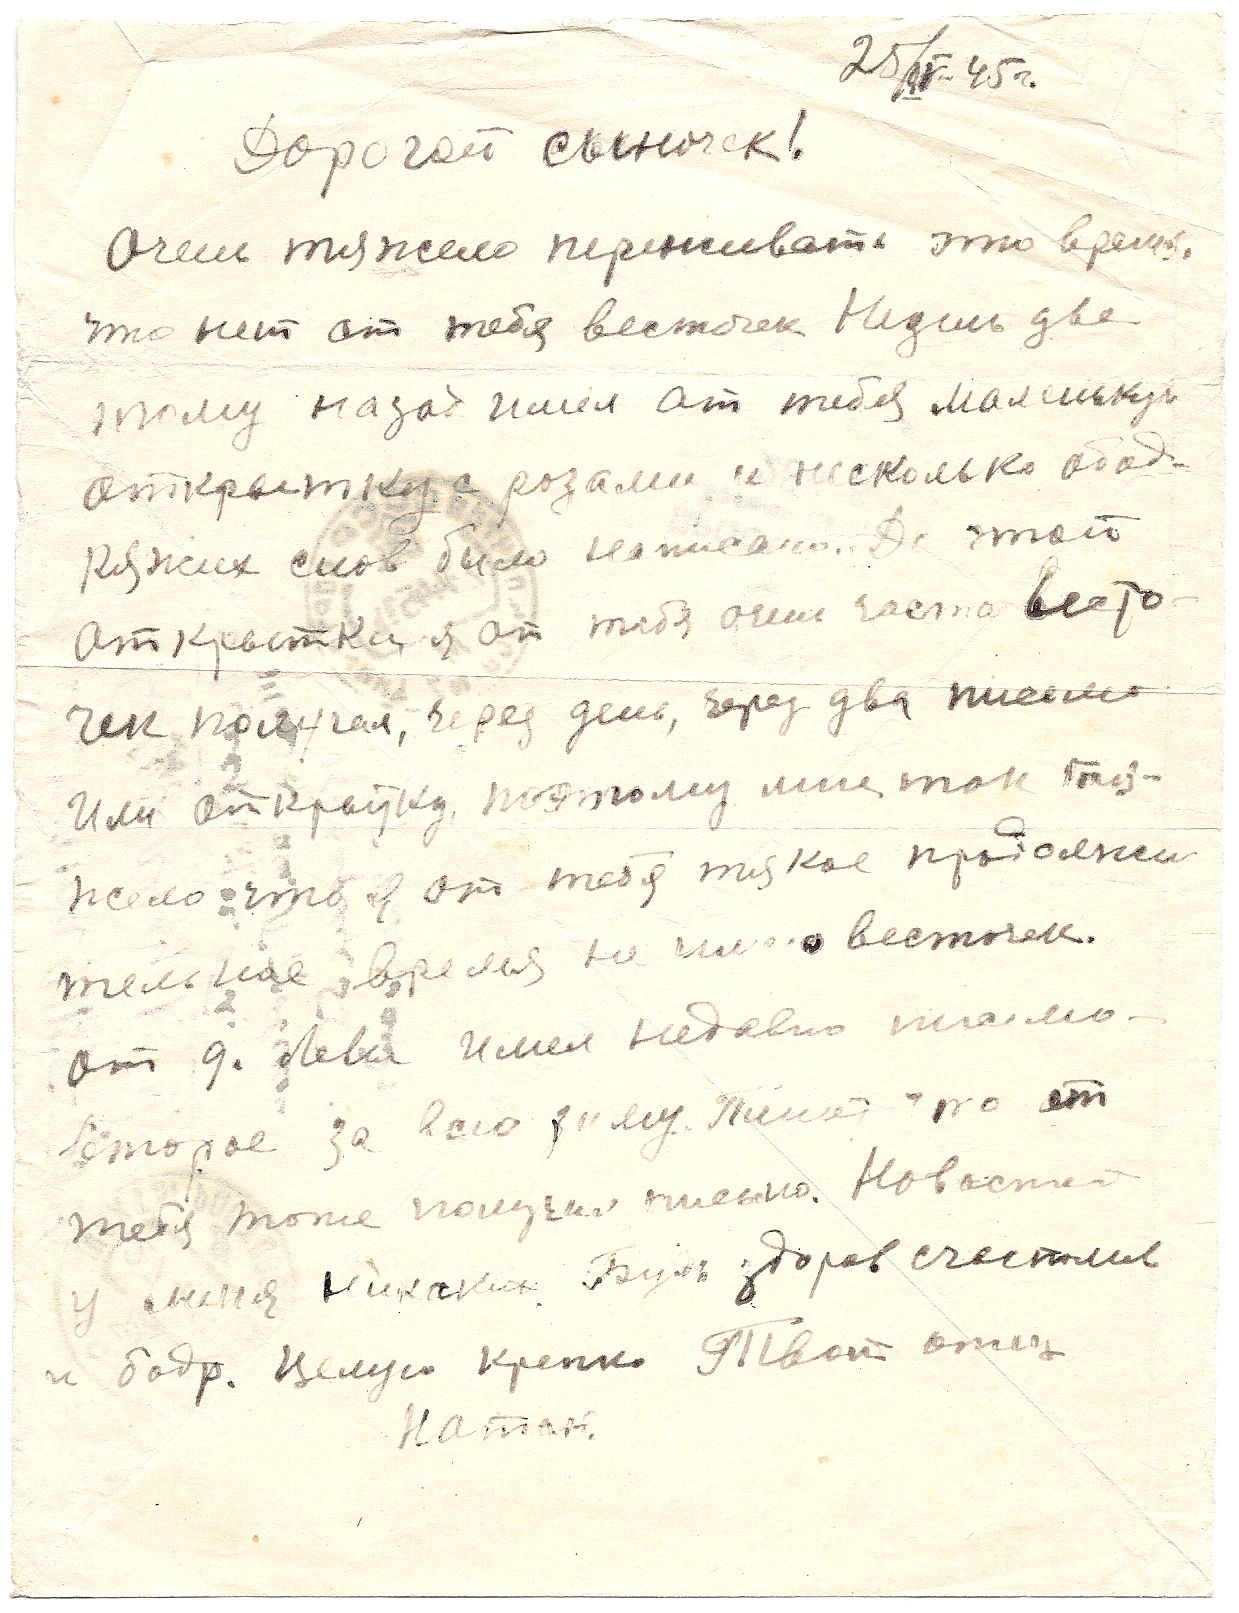 25/IV-45г.
Дорогой сыночек!
Очень тяжело переживать это время.
что нет от тебя весточек Недель две
тому назад имел от тебя маленькую
открытку с розами и несколько обод-
ряжих слов было написано. До этой
открытки я от тебя очень часто весто-
чек получал, через день, через два письмо
или открытку, поэтому мне так тяж-
жело что я от тебя такое продолжи
тельное время не имею весточек.
от д. Левы имел недавно письмо-
второе за всю зиму. Пишет что от
тебя тоже получил письмо. Новостей
у меня никаких. Будь здоров счастлив
и бодр. Целую крепко Твой отец
Натан.